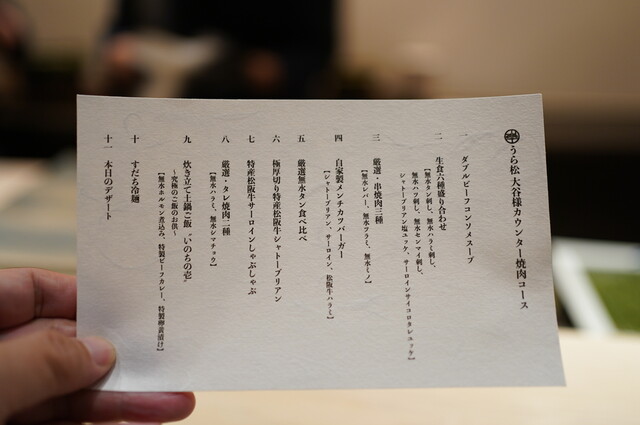 うら松 大谷様カウンター焼肉コース
一 ダブルビーフコンソメスープ
二 生食六種盛り合わせ
【無水タン刺し、無水ハラミ刺し、
無水ハツ刺し、無水センマイ刺し、
シャトーブリアン塩ユッケ、サーロインサイコロタレユッケ】
三 厳選・串焼肉三種
【無水レバー、無水フラミ、無水ミノ】
四 自家製メンチカツバーガー
【シャトーブリアン、サーロイン、松阪牛ハラミ】
五 厳選無水タン食べ比べ
六 極厚切り特産松阪牛シャトーブリアン
七 特産松阪牛サーロインしゃぶしゃぶ
八 厳選・タレ焼肉二種
【無水ハラミ、無水シマチョウ】
九 炊き立て土鍋ご飯〝いのちの壱〟
～究極のご飯のお供～
【無水ホルモン煮込み、特製ビーフカレー、特製卵黄漬け】
十 すだち冷麺
十一 本日のデザート